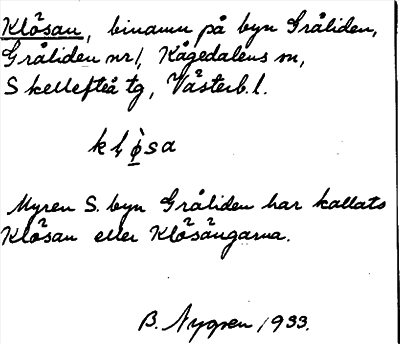 Klösan, binamn på byn Gråliden,
Gråliden nr 1, Kågedalens sn,
Skellefteå tg, Västerb. l.
Myren S. byn Gråliden har kallats
Klösan eller Klösängarna.
B. Nygren 1933.